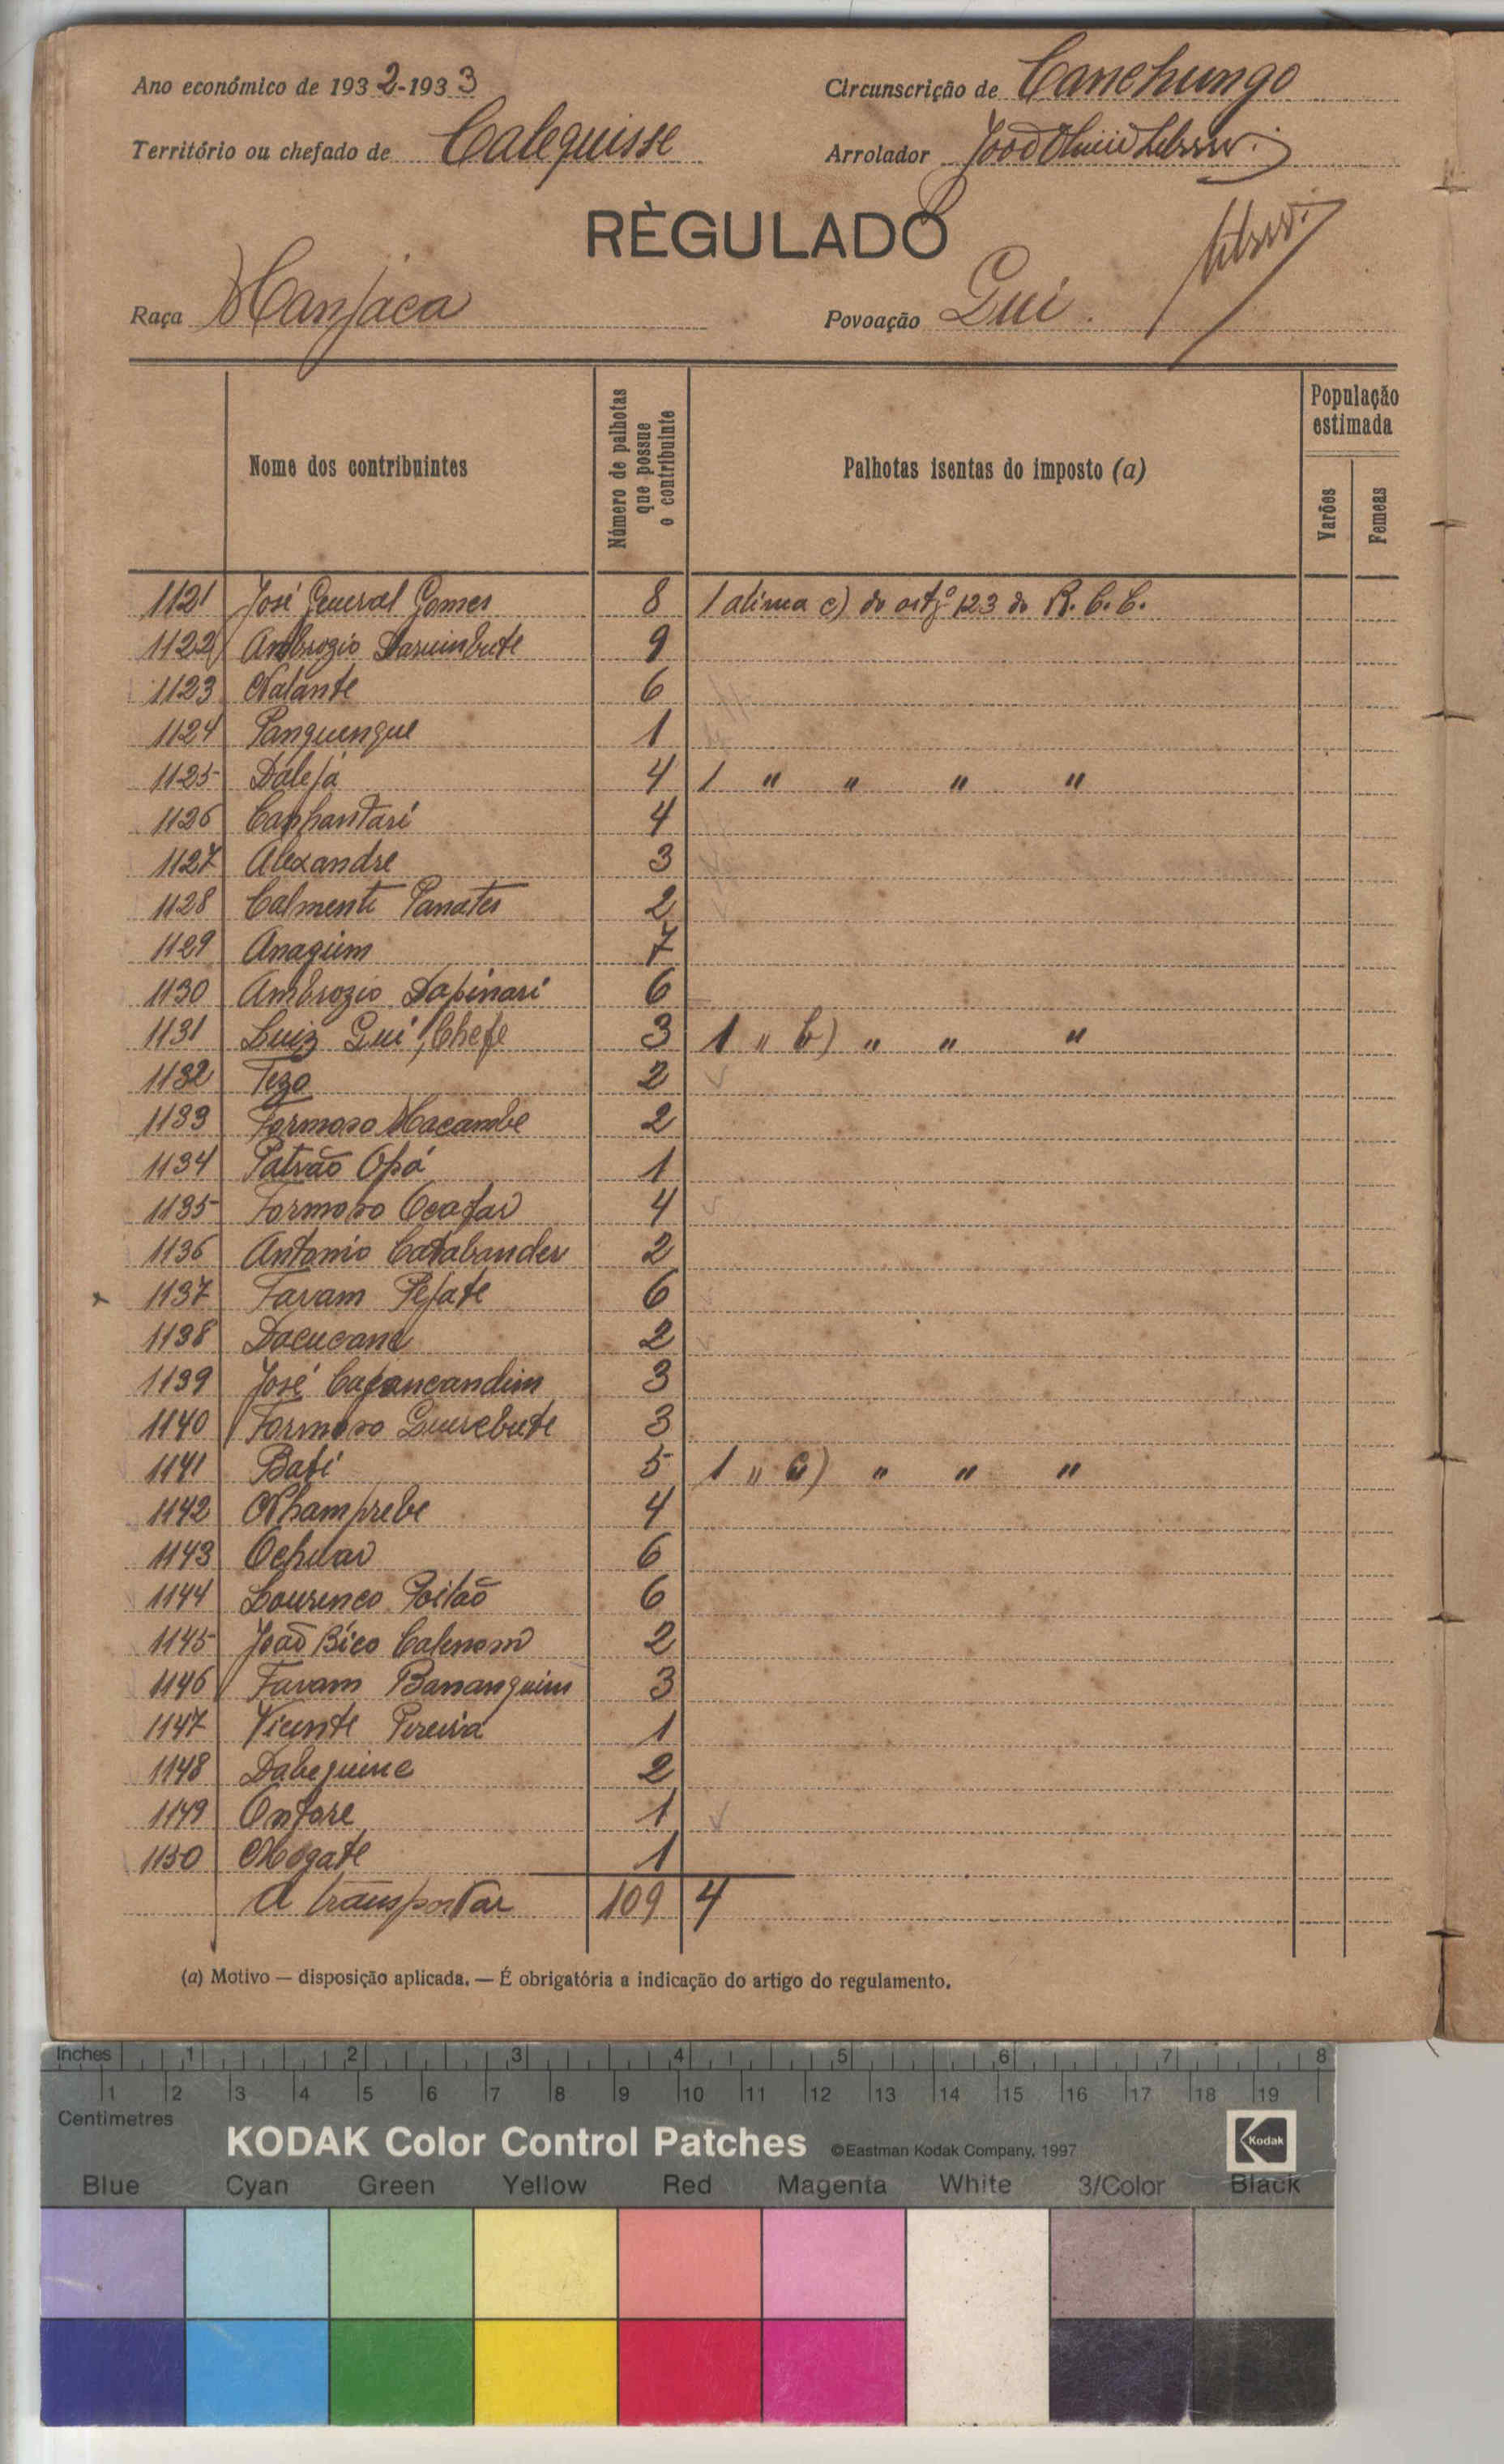 Ano económico de 1932-1933
Circunscrição de Canchungo
Território ou chefado de Calequisse
Arrolador João
RÈGULADO
Raça Manjaca
Povoação Gui.
Nome dos contribuintes
Número de palhotas que possue o contribuinte
Palhotas isentas do imposto (a)
População estimada
Varões
Femeas
1121 José General Gomes 8 1 alinea c) do artgº 123 do R. C. C.
1122 Ambrozio 9
1123 Nalante 6
1124 Panguengue 1
1125 Daleja 4 1 " " " "
1126 Canhantari 4
1127 Alexandre 3
1128 Calmenti Panates 2
1129 Anagum 7
1130 Ambrozio Dapinari 6
1131 Luiz Gui, Chefe 3 1 " b) " " "
1132 Tezo 2
1133 Formoso Macambe 2
1134 Patrão Opá 1
1135 Formoso 4
1136 Antonio 2
1137 Favam Pejate 6
1138 2
1139 José 3
1140 Formoso 3
1141 Bati 5 1 " c) " " "
1142 Nhamprebe 4
1143 6
1144 Lourenco Poilão 6
1145 João Bico 2
1146 Favam Bananguim 3
1147 Vicente Pereira 1
1148 Dabequine 2
1149 Onfore 1
1150 1
A transportar 109 4
(a) Motivo — disposição aplicada. — É obrigatória a indicação do artigo do regulamento.
Inches 1 2 3 4 5 6 7 8
1 2 3 4 5 6 7 8 9 10 11 12 13 14 15 16 17 18 19
Centimetres
KODAK Color Control Patches ©Eastman Kodak Company, 1997 Kodak
Blue Cyan Green Yellow Red Magenta White 3/Color Black